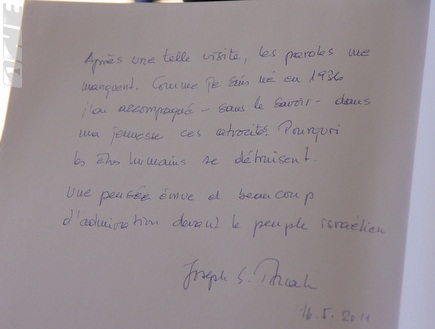 Après une telle visite, les paroles me
manquent. Comme je suis né en 1936
j'ai accompagné – sans le savoir – dans
ma jeunesse ces atrocités. Pourquoi
les êtres humains se détruisent.
Une pensée émue et beaucoup
d'admiration devant le peuple israélien
Joseph S.
16.5.2011